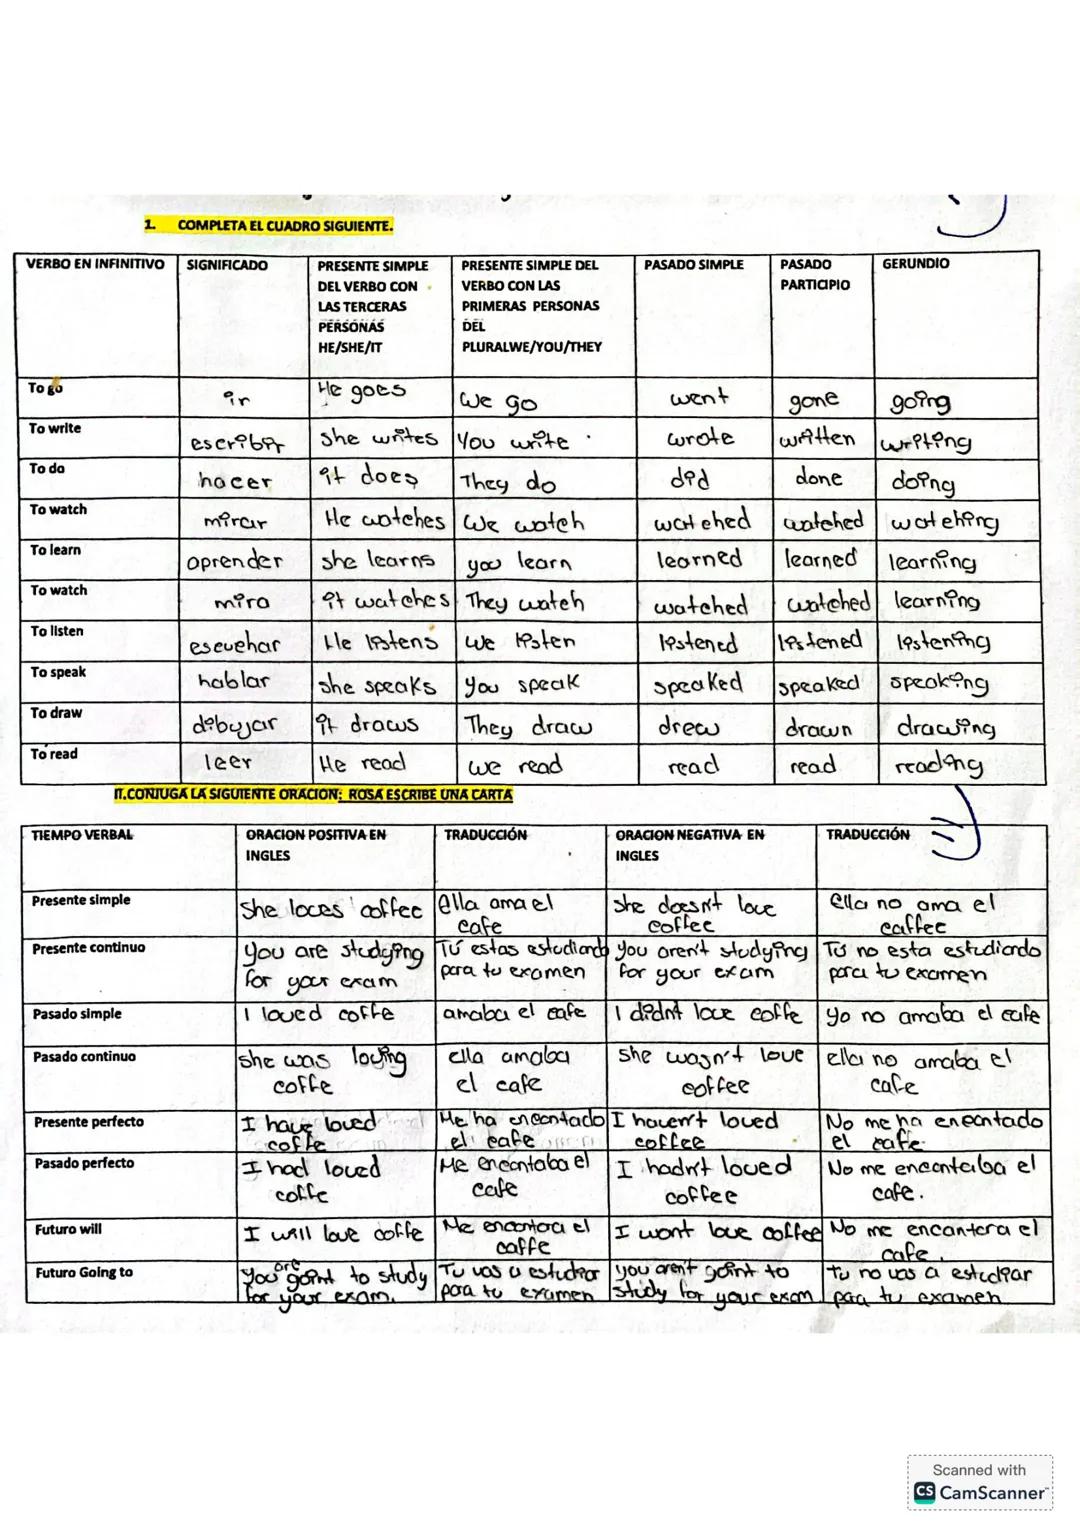 1. COMPLETA EL CUADRO SIGUIENTE.
VERBO EN INFINITIVO SIGNIFICADO PRESENTE SIMPLE DEL VERBO CON LAS TERCERAS PERSONAS HE/SHE/IT PRESENTE SIMPLE DEL VERBO CON LAS PRIMERAS PERSONAS DEL PLURALWE/YOU/THEY PASADO SIMPLE PASADO PARTICIPIO GERUNDIO
To go ir He goes We go went gone going
To write escribir She writes You write wrote written writing
To do hacer it does They do did done doing
To watch mirar He watches We watch watched watched watching
To learn aprender she learns you learn learned learned learning
To watch mira it watches They watch watched watched learning
To listen escuchar He listens we listen listened listened listening
To speak hablar she speaks you speak speaked speaked speaking
To draw dibujar it draws They draw drew drawn drawing
To read leer He read we read read read reading
II.CONJUGA LA SIGUIENTE ORACION: ROSA ESCRIBE UNA CARTA
TIEMPO VERBAL ORACION POSITIVA EN INGLES TRADUCCIÓN ORACION NEGATIVA EN INGLES TRADUCCIÓN
Presente simple She loves coffee ella ama el cafe she doesn't love coffee ella no ama el caffee
Presente continuo you are studying for your exam Tú estas estudiando para tu examen you aren't studying for your exam Tú no esta estudiando para tu examen
Pasado simple I loved coffe amaba el cafe I didn't love coffe yo no amaba el cafe
Pasado continuo she was loving coffe ella amaba el cafe she wasn't love coffee ella no amaba el cafe
Presente perfecto I have loved coffe Me ha encantado el cafe I haven't loved coffee No me ha encantado el cafe.
Pasado perfecto I had loved coffe Me encantaba el cafe I hadn't loved coffee No me encantaba el cafe.
Futuro will I will love coffe Me encantara el caffe I wont love coffee No me encantara el cafe.
Futuro Going to You are goint to study for your exam. Tu vas a estudiar para tu examen you aren't goint to study for your exam tu no vas a estudiar para tu examen
Scanned with
CS CamScanner